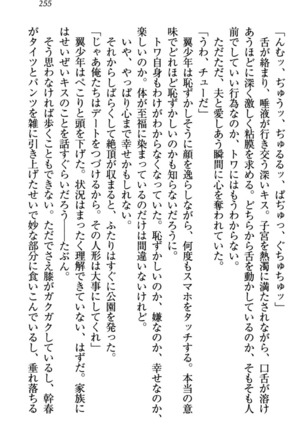 255
「んむっ、ぢゅうっ、ぢゅるるッ、ぱぢゅっ、ぐちゅちゅッ」
舌が絡まり、唾液が行き交う深いキス。子宮を熱濁に満たされながら、口舌が溶けあうほどに深く激しく粘膜を求める。どちらから舌を動かしているのか、そもそも人前でしていい行為なのか、トワにはもうわからない。
ただただ、夫と愛しあう瞬間に心を奪われていた。
「うわ、チューだ」
翼少年は恥ずかしそうに顔を逸らしながら、何度もスマホをタッチする。本当の意味でどれほど恥ずかしいのかも知らないだろうに。
トワ自身もわけがわからなくなっていた。恥ずかしいのか、嫌なのか、幸せなのか、楽しいのか。体が至福に染まっているのだけは間違いないけれど。
いや、やっぱり心まで幸せかもしれない。
それからしばらくして絶頂が収まると、ふたりはすぐに公園を発った。
「じゃあ俺たちはデートをつづけるから。その人形は大事にしてくれ」
翼少年はぺこりと頭を下げた。状況はまったく理解できていない、はずだ。家族にはせいぜいキスのことを話すぐらいだろう――たぶん。
そう思わなければ歩くこともできない。ただでさえ膝がガクガクしているし、幹春がタイツとパンツを雑に引き上げたせいで妙な部分に食いこんでいるし、垂れ落ちる